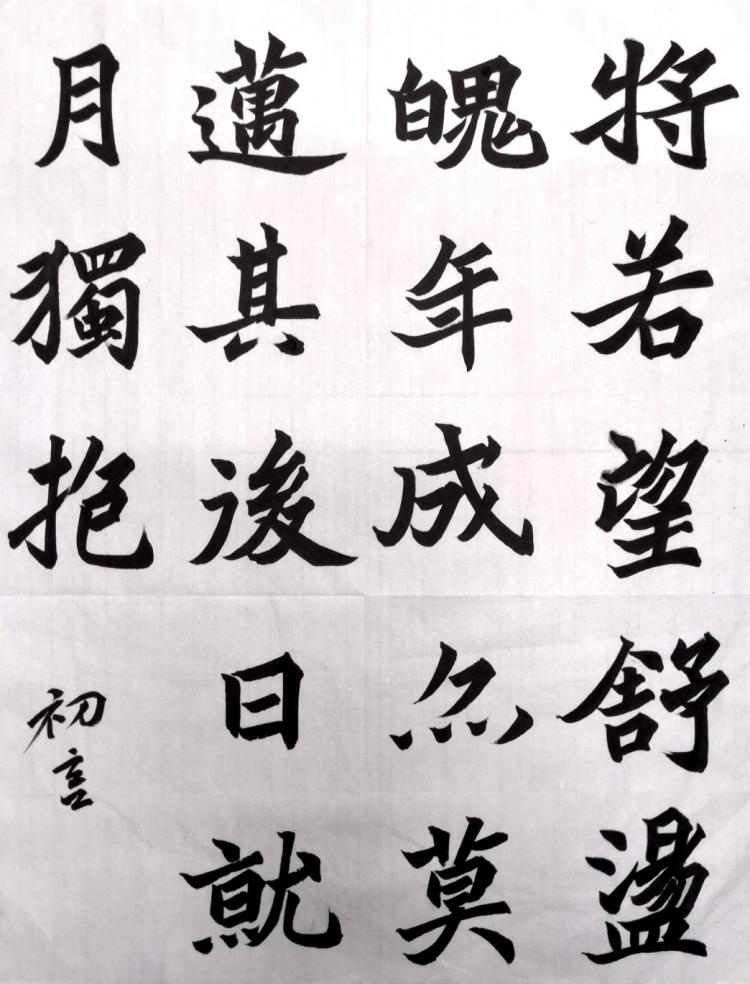 將若望舒盪
魄年成莫
邁其後日就
月獨抱
初言